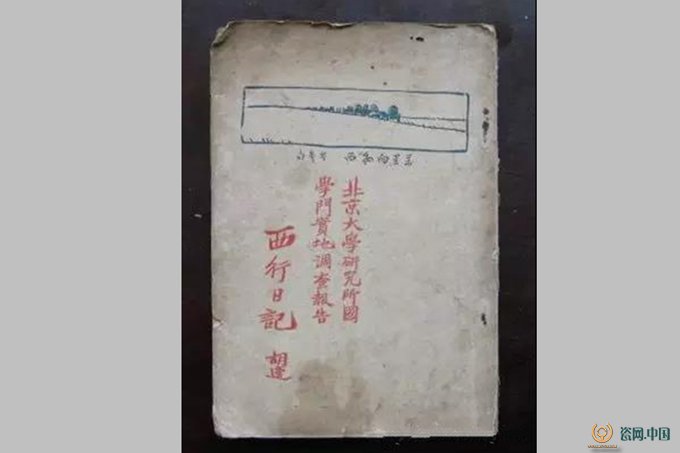 北京大學研究所國
學門實地調查報告
西行日記 胡適
瓷网.中国